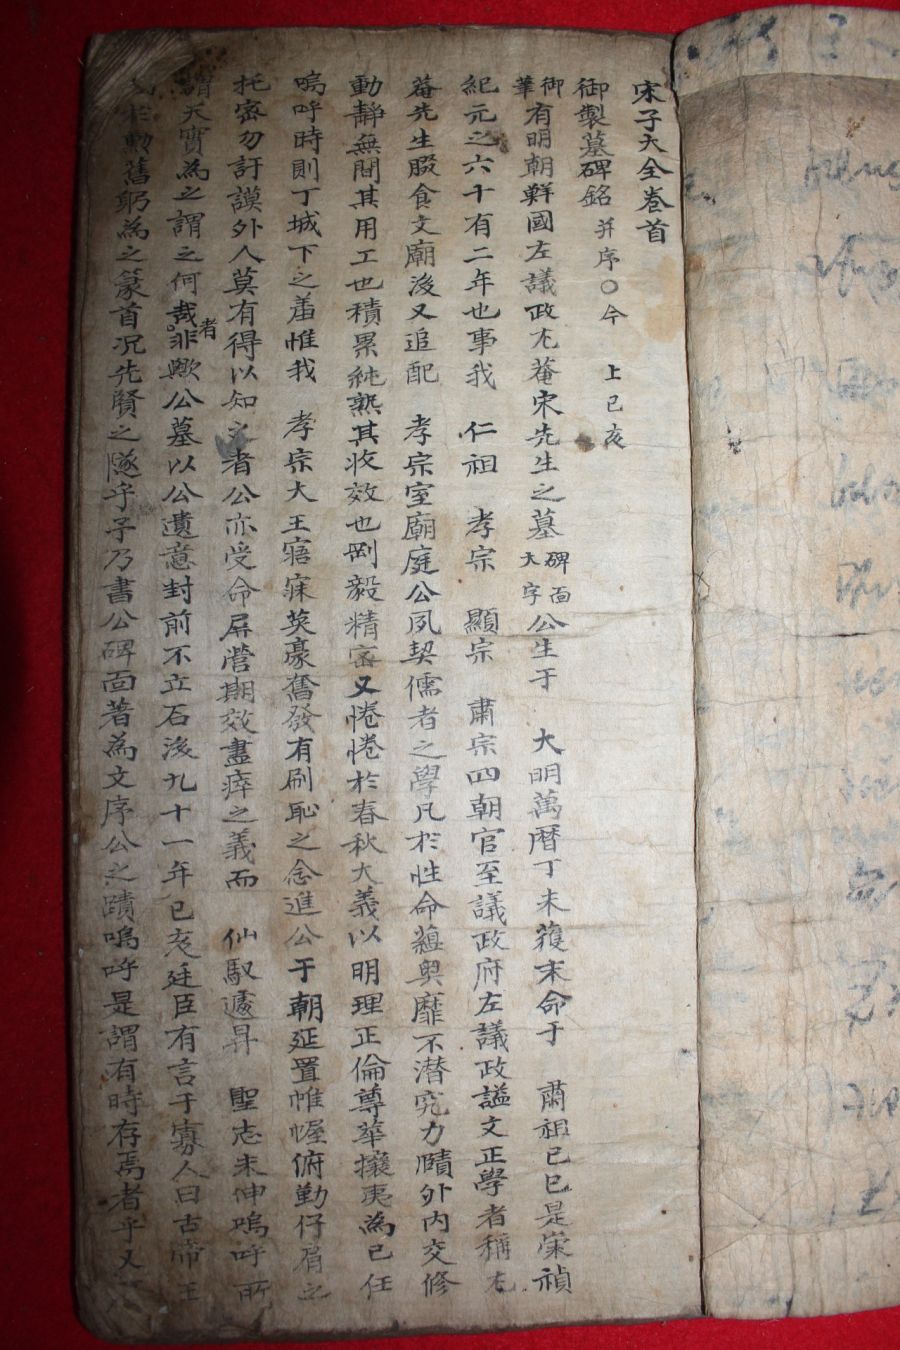 宋子大全卷首
御製墓碑銘 幷序○今 上己亥
御華有明朝鮮國左議政尤菴宋先生之墓碑面大字公生于 大明萬曆丁未蕿末命于 肅祖己巳是崇禎
紀元之六十有二年也事我 仁祖 孝宗 顯宗 肅宗四朝官至議政府左議政謚文正學者稱尤
菴先生腏食文廟後又追配 孝宗室廟庭公夙契儒者之學凡於性命蘊奧靡不潛究力賾外內交修
動靜無間其用工也積累純熟其收效也剛毅精密又惓惓於春秋大義以明理正倫尊華攘夷為己任
嗚呼時則丁城下之羞惟我 孝宗大王寤寐英豪奮發有刷恥之念進公于朝延置帷幄俯勤仔肩之
托密勿訏謨外人莫有得以知之者公亦受命屏營期效盡瘁之義而 仙馭遽昇 聖志未伸嗚呼所
謂天實為之謂之何哉者非歟公墓以公遺意封前不立石後九十一年己亥廷臣有言于寡人曰古帝王
於勳舊躬為之篆首况先賢之隧乎予乃書公碑面著為文序公之蹟嗚呼是謂有時存焉者乎又